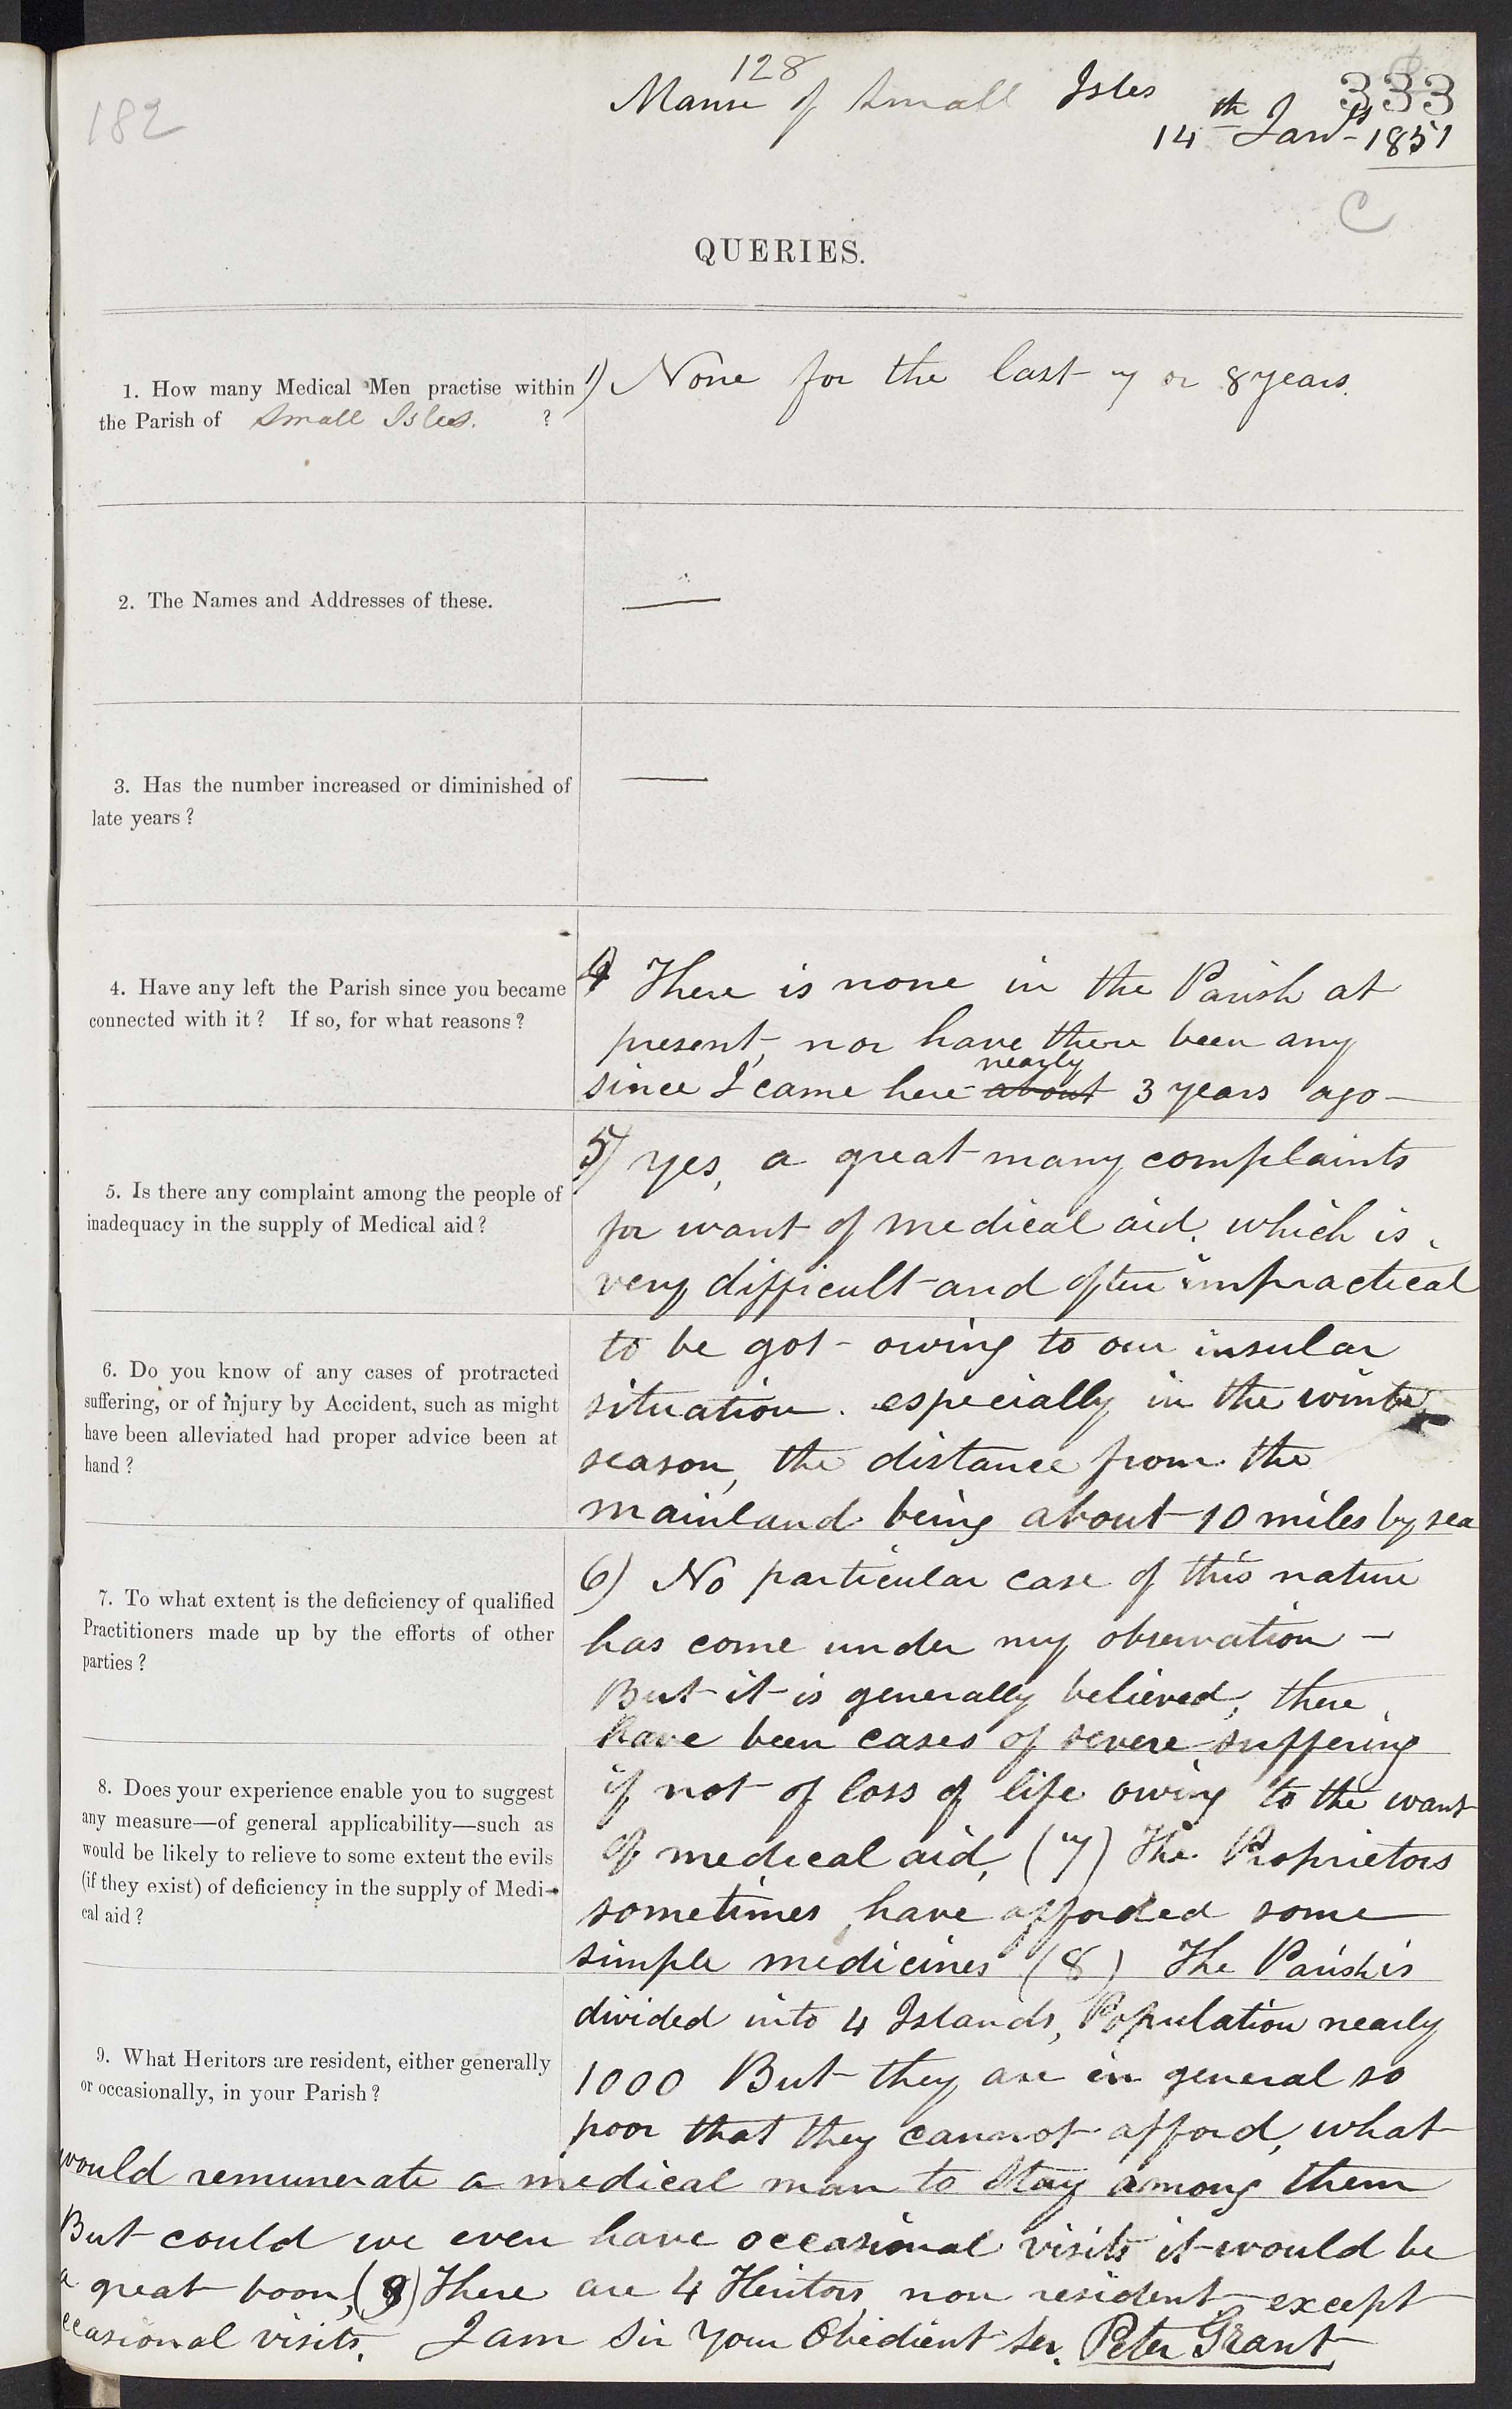 128
182
333
Manse of Small Isles
14th Jany 1851
C
QUERIES.
1. How many Medical Men practise within
the Parish of Small Isles. ?
1) None for the last 7 or 8 years.
2. The Names and Addresses of these.
—
3. Has the number increased or diminished of
late years?
—
4. Have any left the Parish since you became
connected with it? If so, for what reasons?
4) There is none in the Parish at
present, nor have there been any
nearly
since I came here about 3 years ago—
5. Is there any complaint among the people of
inadequacy in the supply of Medical aid?
5) yes, a great many complaints
for want of medical aid, which is
very difficult and often impractical
to be got - owing to our insular
situation. especially in the winter
season, the distance from the
mainland being about 10 miles by sea
6. Do you know of any cases of protracted
suffering, or of injury by Accident, such as might
have been alleviated had proper advice been at
hand?
6) No particular case of this nature
has come under my observation -
But it is generally believed, there
have been cases of severe suffering
if not of loss of life owing to the want
of medical aid, (7) The Proprietors
sometimes have afforded some
simple medicines (8) The Parish is
divided into 4 Islands, Population nearly
1000 But they are in general so
poor that they cannot afford, what
7. To what extent is the deficiency of qualified
Practitioners made up by the efforts of other
parties?
8. Does your experience enable you to suggest
any measure—of general applicability—such as
would be likely to relieve to some extent the evils
(if they exist) of deficiency in the supply of Medi-
cal aid?
9. What Heritors are resident, either generally
or occasionally, in your Parish?
would remunerate a medical man to stay among them
But could we even have occasional visits it would be
a great boon, (9) There are 4 Heritors non resident except
occasional visits. I am Sir Your Obedient Ser. Peter Grant